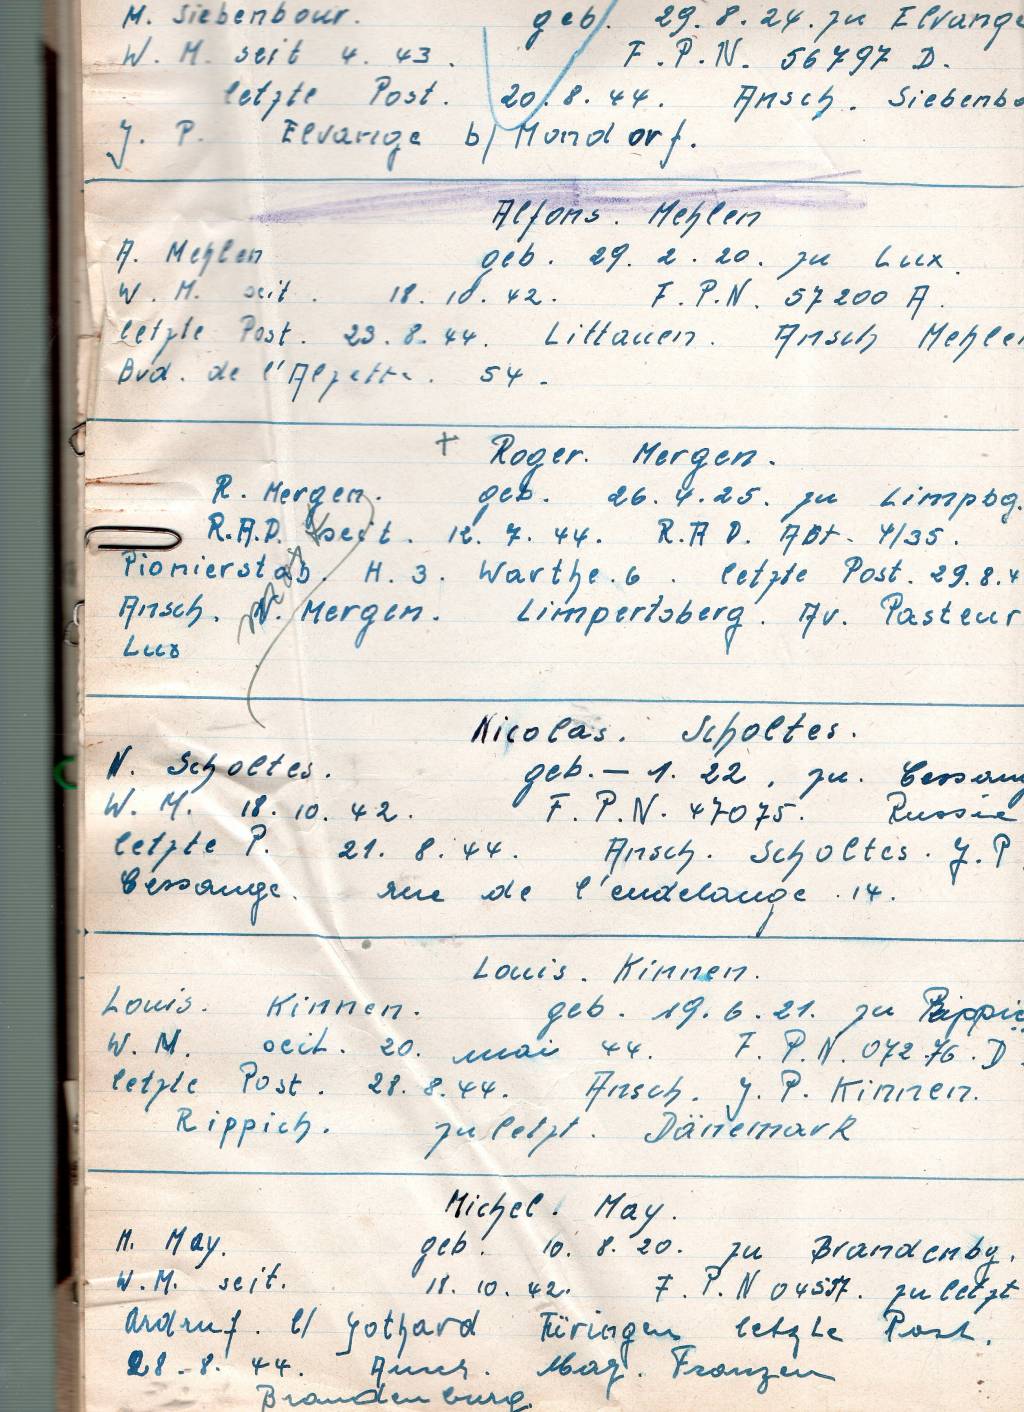 M. Siebenbour. geb. 29.8.24. zu Elvange
W. M. seit 4. 43. F.P.N. 56797 D.
letzte Post. 20.8.44. Ansch. Siebenbo
J. P. Elvange b/ Mondorf.
Alfons. Mehlen
A. Mehlen geb. 29. 2. 20. zu Lux.
W. M. seit. 18. 10. 42. F.P.N. 57200 A.
letzte Post. 23.8.44. Littauen. Ansch Mehlen
Bvd. de l'Alzette. 54.
+ Roger. Mergen.
R. Mergen. geb. 26.4.25. zu Limpbg.
R.A.D. seit. 12. 7. 44. R.A D. ABt. 4/35.
Pionierstab. H. 3. Warthe. 6. letzte Post. 29.8.4
Ansch. N. Mergen. Limpertsberg. Av. Pasteur
Lux
Nicolas. Scholtes.
N. Scholtes. geb. — 1. 22, zu. Cessang
W. M. 18. 10. 42. F. P. N. 47075. Russie
letzte P. 21. 8. 44. Ansch. Scholtes. J. P
Cessange. rue de l'endelange. 14.
Louis. Kinnen.
Louis. Kinnen. geb. 19. 6. 21. zu Rippic
W. M. seit. 20. mai 44. F. P. N. 07276. D.
letzte Post. 28.8.44. Ansch. J. P. Kinnen.
Rippich. zuletzt. Dänemark
Michel. May.
M. May. geb. 10. 8. 20. zu Brandenbg.
W. M. seit. 18. 10. 42. F. P. N zuletzt
Ardruf. b/ Gothard Türingen letzte Post.
28.8. 44. May. Franzen
Brandenburg.